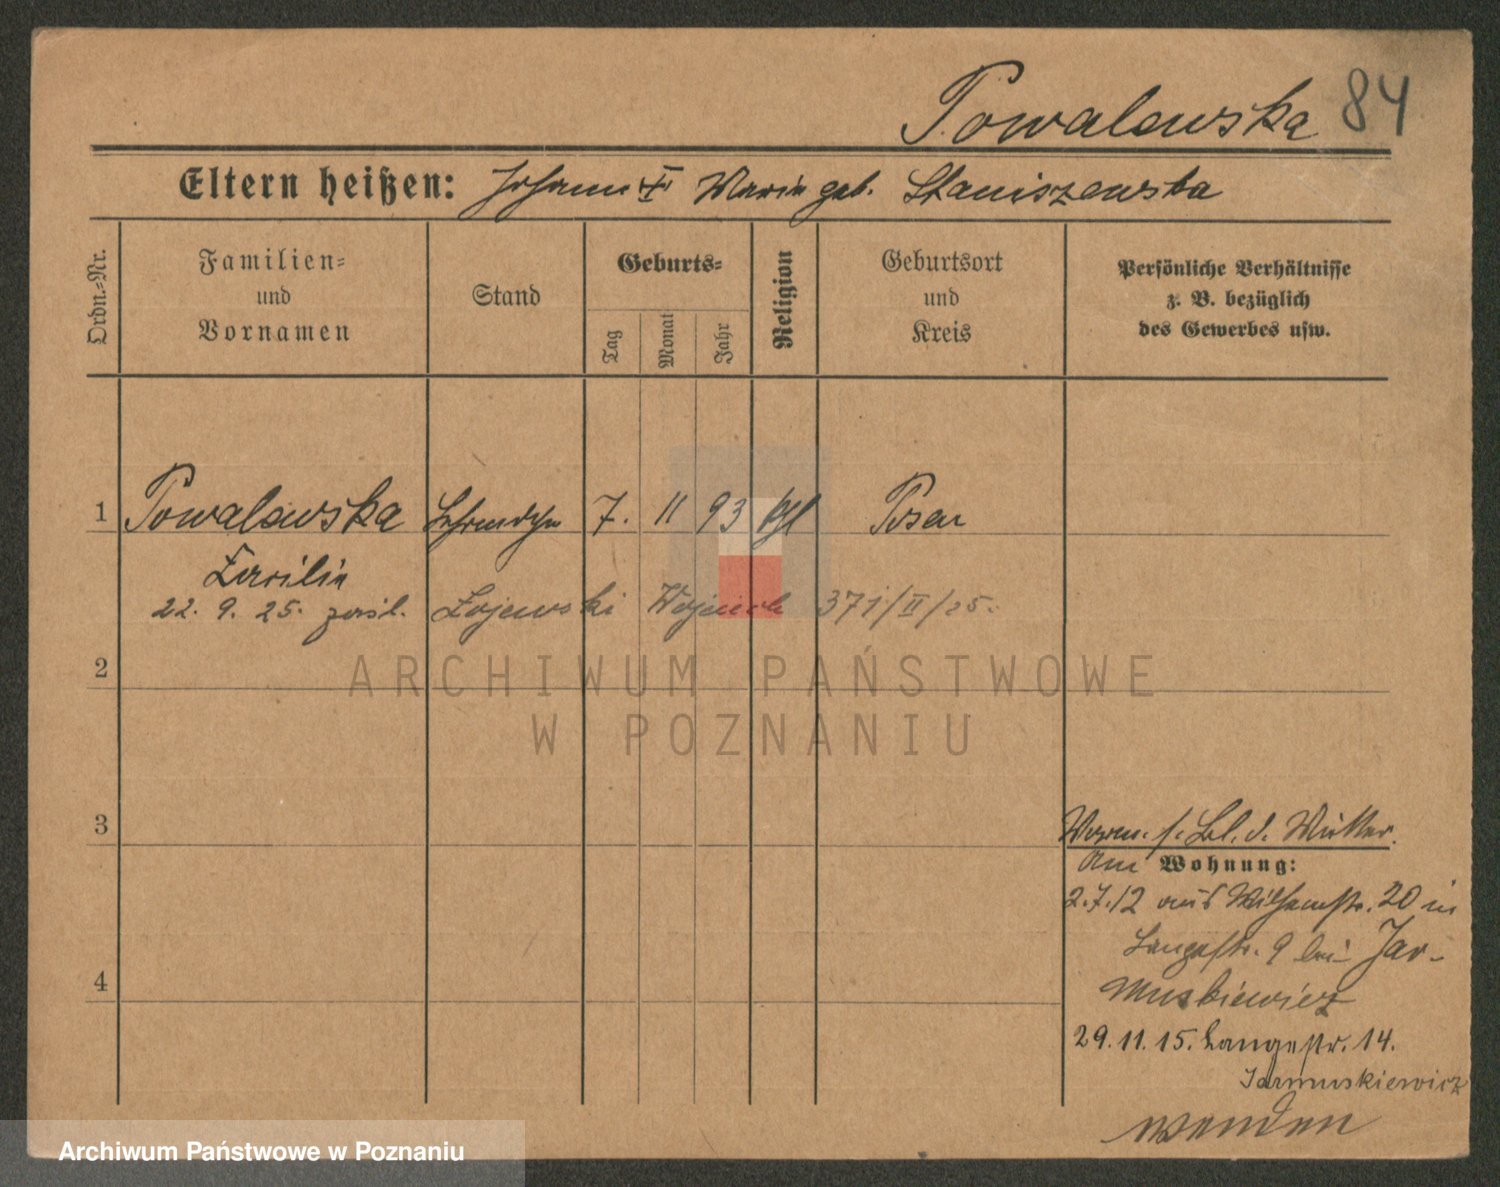 Powalowska 84
Eltern heißen: Johann Maria geb. Staniszewska
Ordn.-Nr.
Familien-
und
Vornamen
Stand
Geburts-
Tag
Monat
Jahr
Religion
Geburtsort
und
Kreis
Persönliche Verhältnisse
z. B. bezüglich
des Gewerbes usw.
1 Powalowska 7. 11 93 kth Posen
22. 9. 25. zaśl. Łojewski 371/II/25.
2
3
4
Worm. s. Bl. d. Mutter.
am Wohnung:
2.7.12 aus Wilhelmstr. 20 in
Langestr. 9 bei Jar-
muskiewicz
29.11.15. Langestr. 14.
Jarmuskiewicz
wenden
ARCHIWUM PAŃSTWOWE
W POZNANIU
Archiwum Państwowe w Poznaniu